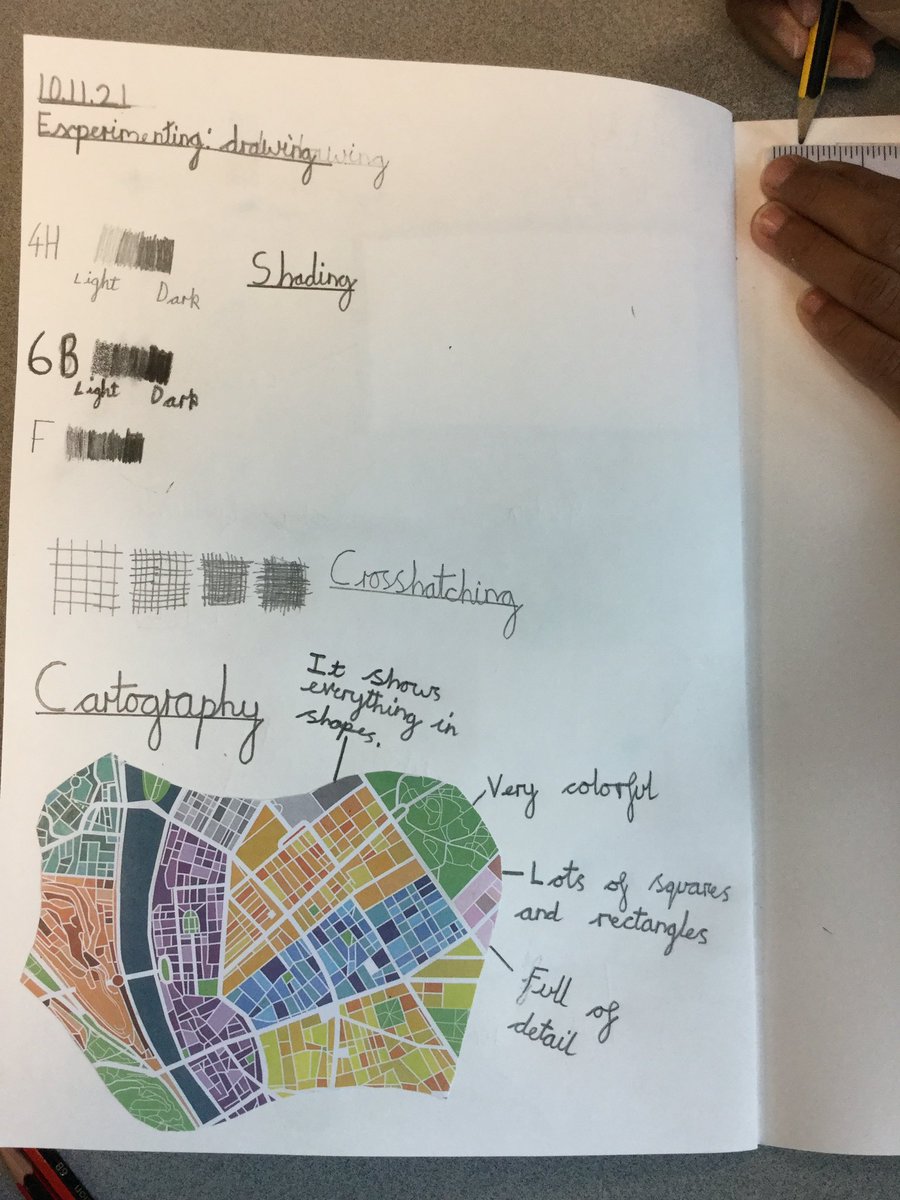 10.11.21
Experimenting: drawing
4H
Light Dark
Shading
6B
Light Dark
F
Crosshatching
Cartography
It shows
everything in
shapes.
Very colorful
Lots of squares
and rectangles
Full of
detail